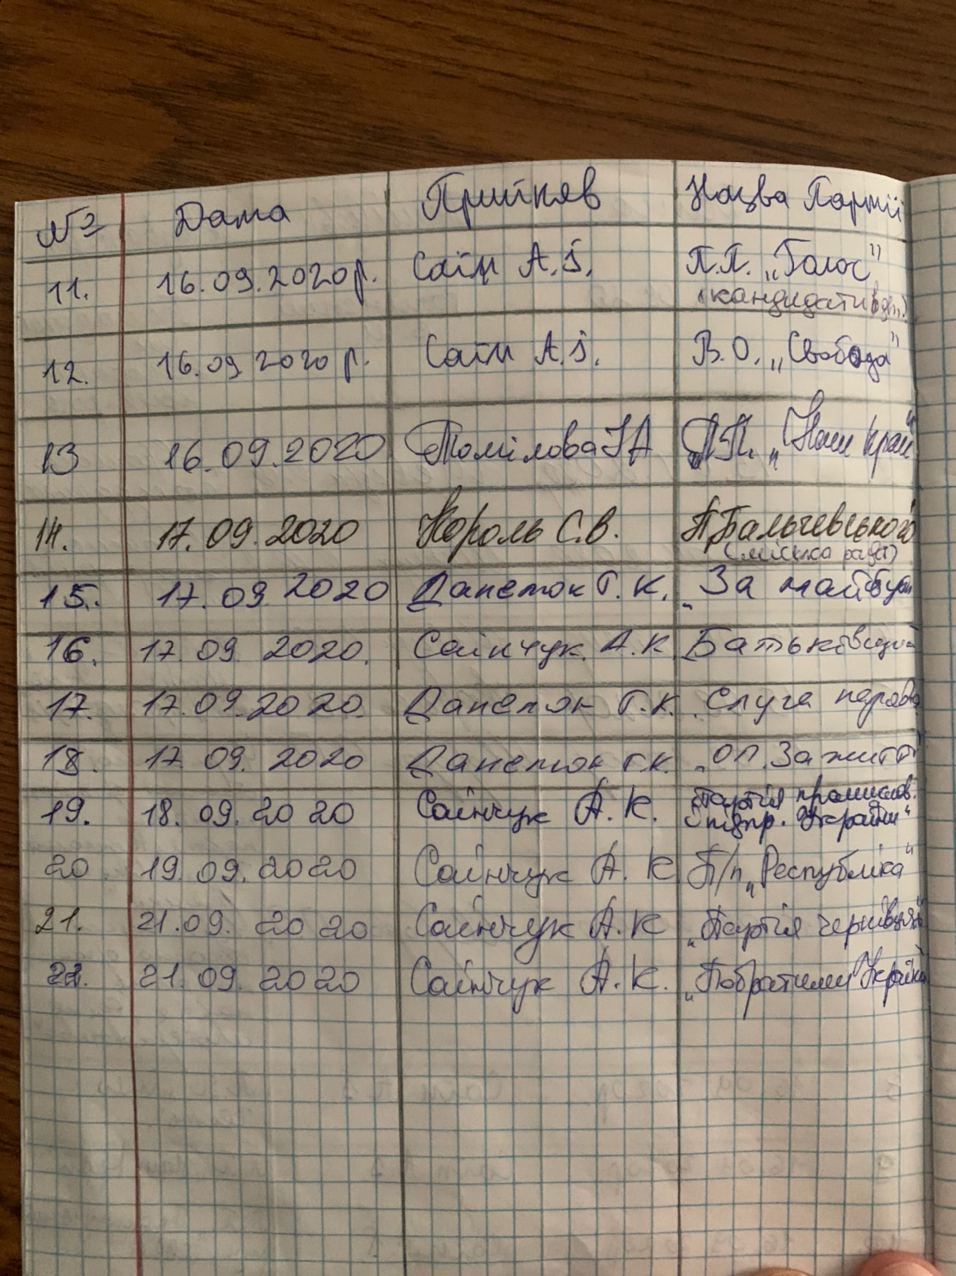 № Дата Прийняв Назва Партії
11. 16.09.2020р. Саїн А.І. П.П. „Голос”
(кандидати в деп.)
12. 16.09 2020 р. Саїн А.І. В.О. „Свобода”
13 16.09.2020 Томілова Н А П.П. „Наш край”
14. 17.09.2020 Король С.В. П. Пальчевського
(міська рада)
15. 17.09 2020 Данелюк Г.К. „За майбутн
16. 17.09 2020. Саїнчук. А.К. Батьківщина
17. 17.09.2020. Данелюк Г.К. Слуга народа
18. 17 09. 2020 Данелюк Г.К. „ОП. За життя
19. 18.09.2020 Саїнчук А.К. „Партія промислов.
і підпр. України”
20 19.09.2020 Саїнчук А.К П/п „Республіка”
21. 21.09. 2020 Саїнчук А.К „Партія чернівчан”
22. 21.09 2020 Саїнчук А.К. „Побратими України